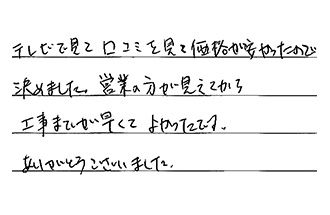 テレビで見て口コミを見て価格が安かったので
決めました。営業の方が見えてから
工事までが早くてよかったです。
ありがとうございました。